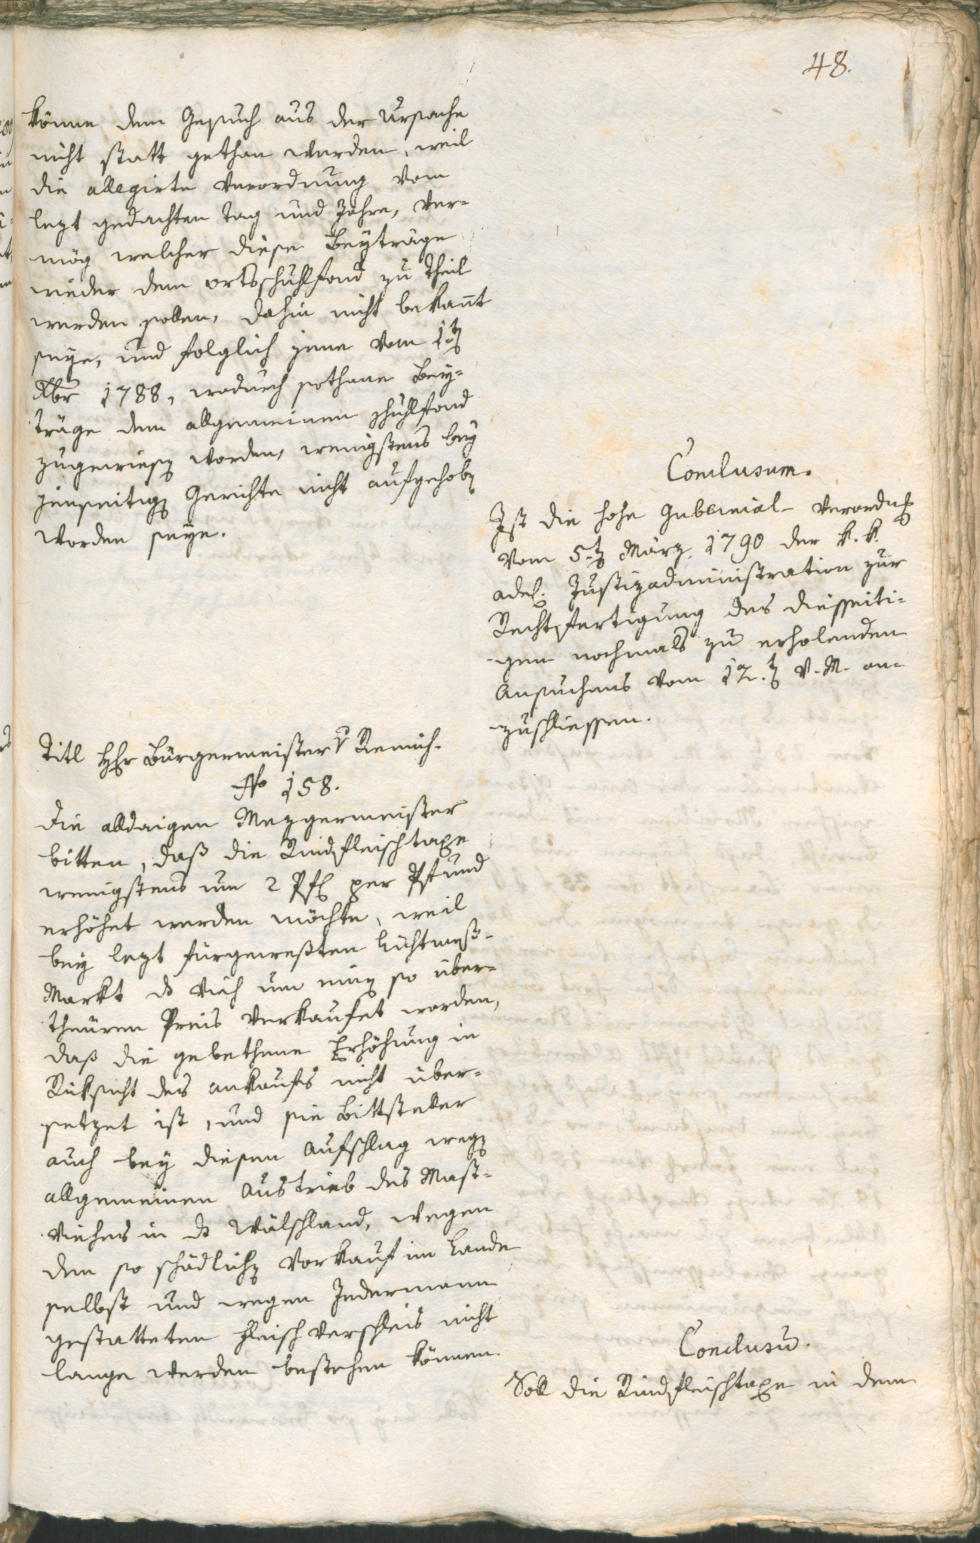 48.
könne dem Gesuch aus der Ursache
nicht statt gethan werden, weil
die allegirte Verordnung vom
lezt gedachten Tag und Jahre, Ver-
mög welcher diese Beyträge
wieder dem ortsschuhlfond zu theil
werden sollen, dahin nicht bekañt
seye, und folglich jene vom 1t
Xbr 1788, wodurch sothane Bey-
träge dem allgemeinen Schuhlfond
zugewiesen worden, wenigstens bey
jenseitigen Gerichte nicht aufgehoben
worden seye.
Conclusum.
Ist die hohe Gubernial-Verordng
vom 5t März 1790 der k. k.
adel. Justizadministration zur
Rechtsfertigung des diesseiti-
gen nochmals zu erholenden
Ansuchens vom 12.t v. M. an-
zuschliessen.
Titl Hr Bürgermeister v Remich.
No 158.
Die alldaigen Mezgermeister
bitten, daß die Rindfleischtaxe
wenigstens um 2 Pf per Pfund
erhöhet werden möchte, weil
bey lezt fürgeweßten Lichtmeß-
Markt ds Vieh um einen so über-
theuren Preis verkaufet worden,
daß die gebethene Erhöhung in
Rüksicht des ankaufs nicht über-
setzet ist, und sie Bittsteller
auch bey diesen Aufschlag wegen
allgemeinen Austrieb des Mast-
Viehes in ds Wälschland, wegen
den so schädlichen Vorkauf im Lande
selbst und wegen Jedermann
gestatteten Fleisch Verschleis nicht
lange werden bestehen können.
Conclusũ.
Soll die Rindfleischtaxe in dem